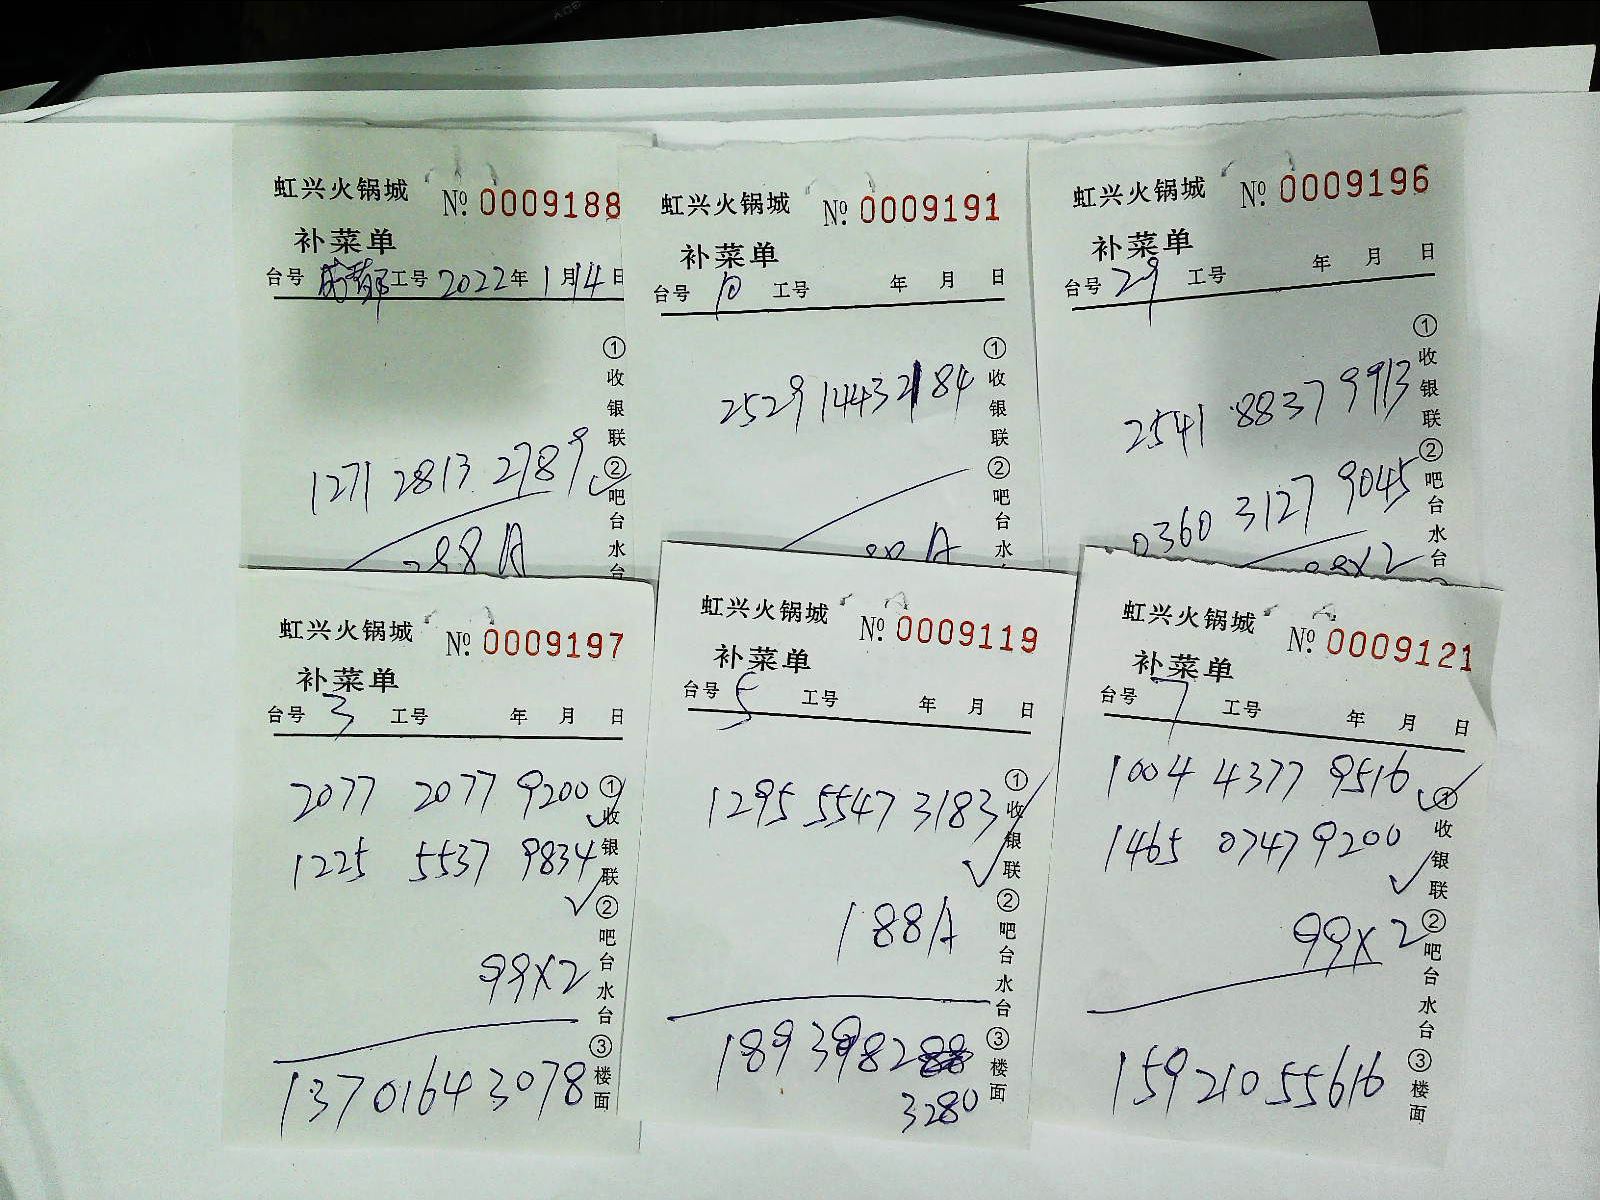 虹兴火锅城 № 0009188
补菜单
台号 成都 工号 2022年 1月 14日
1271 2813 2789
188A
①收银联 ②吧台水台
虹兴火锅城 № 0009191
补菜单
台号 10 工号 年 月 日
2529 1443 2184
88A
①收银联 ②吧台水台
虹兴火锅城 № 0009196
补菜单
台号 29 工号 年 月 日
2541 8837 9913
0360 3127 9045
99X2
①收银联 ②吧台水台
虹兴火锅城 № 0009197
补菜单
台号 3 工号 年 月 日
2077 2077 9200
1225 5537 9834
99X2
13701643078
①收银联 ②吧台水台 ③楼面
虹兴火锅城 № 0009119
补菜单
台号 5 工号 年 月 日
1295 5547 3183
188A
189 3982
3280
①收银联 ②吧台水台 ③楼面
虹兴火锅城 № 0009121
补菜单
台号 7 工号 年 月 日
1004 4377 9516
1465 0747 9200
99X2
15921055616
①收银联 ②吧台水台 ③楼面